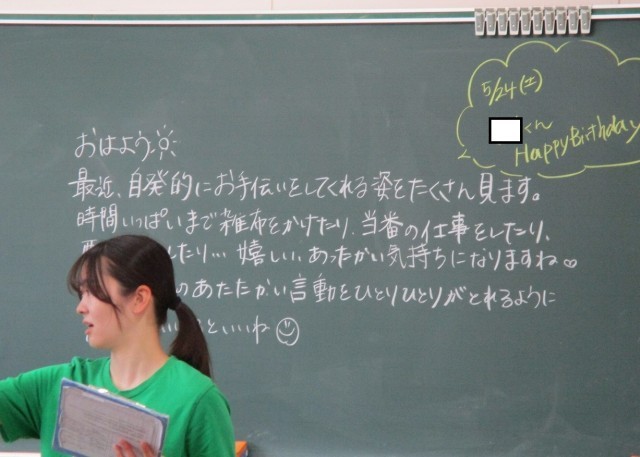 おはよう
最近、自発的にお手伝いをしてくれる姿をたくさん見ます。
時間いっぱいまで雑布をかけたり、当番の仕事をしたり、
したり… 嬉しい、あったかい気持ちになりますね♡
のあたたかい言動をひとりひとりがとれるように
といいね
5/24(土)
くん
Happy Birthday